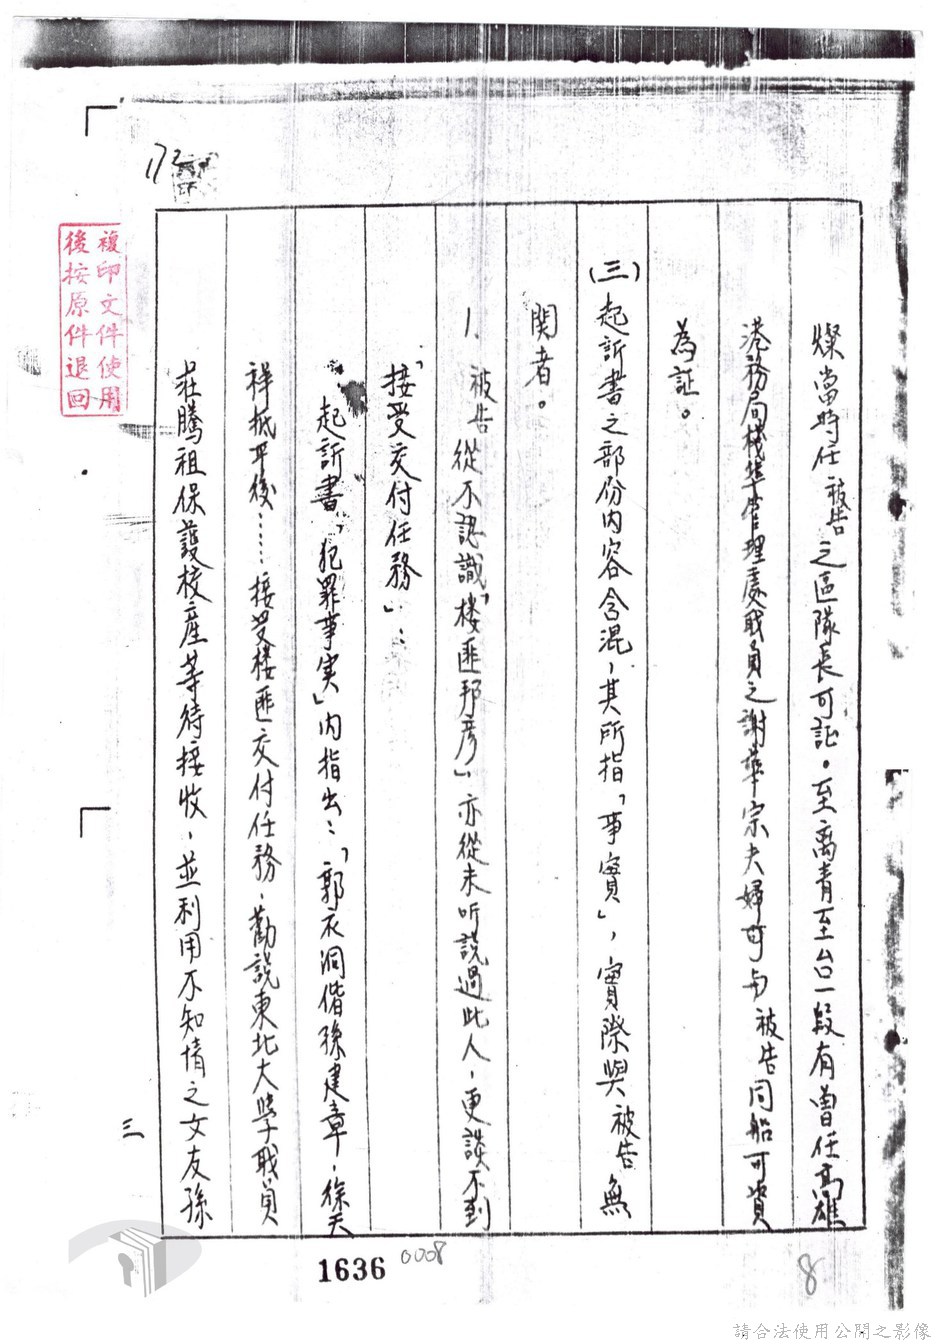 燦當時任被告之區隊長可証。至离青至台一段有曾任高雄
港務局棧埠管理處職員之謝華宗夫婦可与被告同船可資
為証。
(三)起訴書之部份內容含混，其所指「事實」，實際與被告無
関者。
1、被告從不認識「樓匪邦彥」，亦從未听說過此人，更談不到
「接受交付任務」：
起訴書「犯罪事実」內指出：「郭衣洞偕孫建章，徐天
祥抵平後……接受樓匪交付任務，勸說東北大學職員
莊騰祖保護校產等待接收，並利用不知情之文友孫
三
複印文件使用
後按原件退回
172
1636
0008
8
請合法使用公開之影像